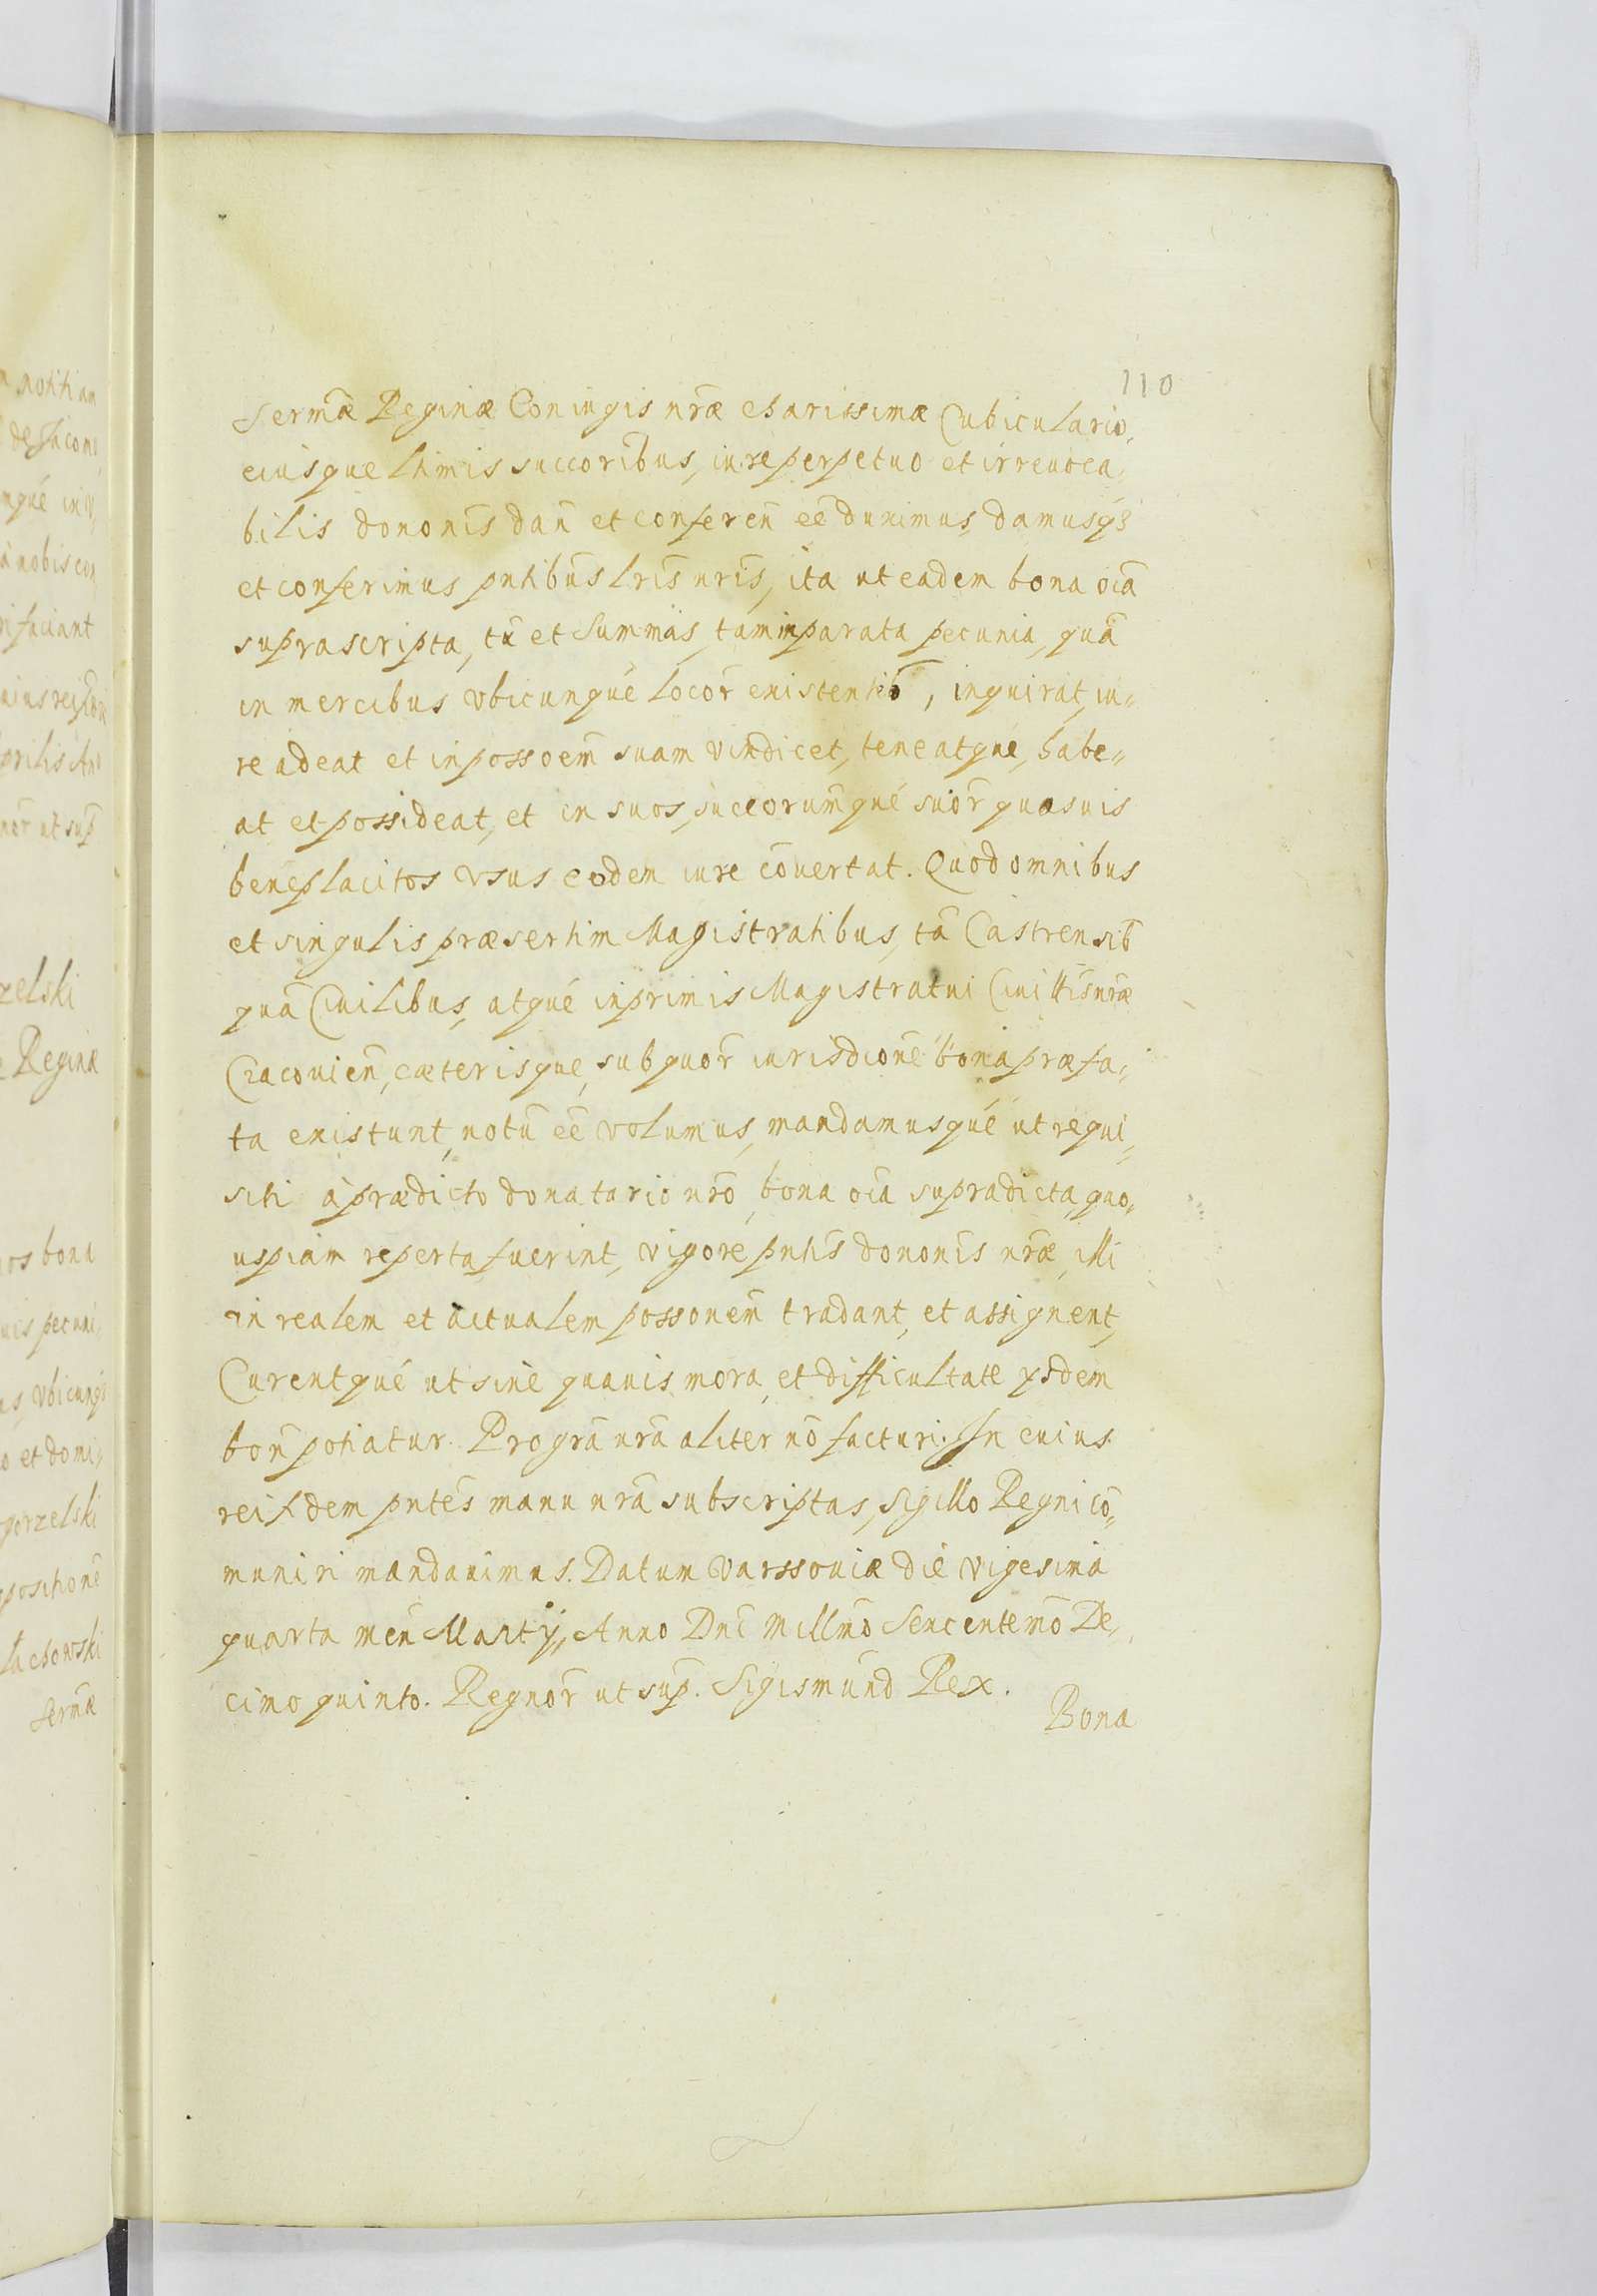 110
Sermæ Reginæ Coniugis nr̃æ charissimæ Cubiculario,
eiusque lt̃imis succoribus, iure perpetuo et irreuoca
bilis dononis dañ et conferen̄ eē duximus, damusq3
et conferimus pn̄tibus l̃ris n̄ris, ita ut eadem bona oĩa
suprascripta, tū et Summas, tam in parata pecunia, quā
in mercibus vbicunqué locor̃ existentib̃, inquirat, iu„
re adeat et in possoem̄ suam vindicet, teneatque, habe„
at et possideat, et in suos, succorum̄qué suor̃ quæsuis
beneplacitos vsus eodem iure cōuertat. Quod omnibus
et singulis præsertim Magistratibus, tā Castrensib̃
quā Ciuilibus, atqué inprimis Magistratui Ciuittis nr̃æ
Cracouien̄, cæterisque, sub quor̃ iurisdione bona præfa„
ta existunt, notū eē volumus, mandamusqué ut requi„
siti à prædicto donatario nr̃o, bona oĩa supradicta, quo„
uspiam reperta fuerint, vigore pn̄tis dononis nr̃æ, illi
in realem et actualem possonem̄ tradant, et assignent,
Curentqué ut sine quauis mora, et difficultate ijsdem
bon̄ potiatur. Pro gr̃a nr̃a aliter nō facturi. In cuius
rei fidem pn̄tes manu nr̃a subscriptas, sigillo Regni cō„
muniri mandauimus. Datum Varssouiæ die vigesima
quarta men̄ Martij, Anno Dn̄i Millm̄o Sexcentem̄o De„
cimo quinto. Regnor̃ ut sup̄. Sigismund̄ Rex.
Bona